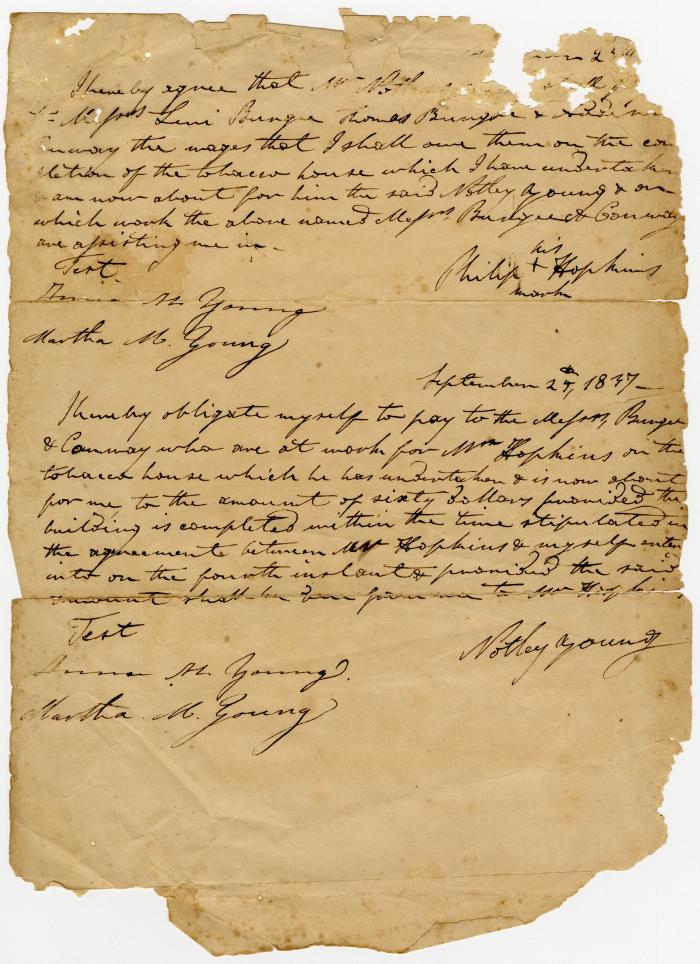 I hereby agree that Mr. Notl
to Messrs Levi Bungee Thomas Bungee &
Conway the wages that I shall owe them on the com
pletion of the tobacco house which I have undertaken
& am now about for him the said Notley Young & on
which work the above named Messrs Bungee & Conway
are assisting me in.
Test
his
Philip + Hopkins
mark
Anna M. Young
Martha M. Young
September 25, 1837
I hereby obligate myself to pay to the Messrs, Bungee
& Conway who are at work for Mr Hopkins on the
tobacco house which he has undertaken & is now about
for me to the amount of sixty dollars provided the
building is completed within the time stipulated in
the agreements between Mr Hopkins & myself enter
into on the fourth instant & provided the said
amount shall be due from me to Mr Hopkin
Test
Notley Young
Anna M. Young.
Martha M. Young